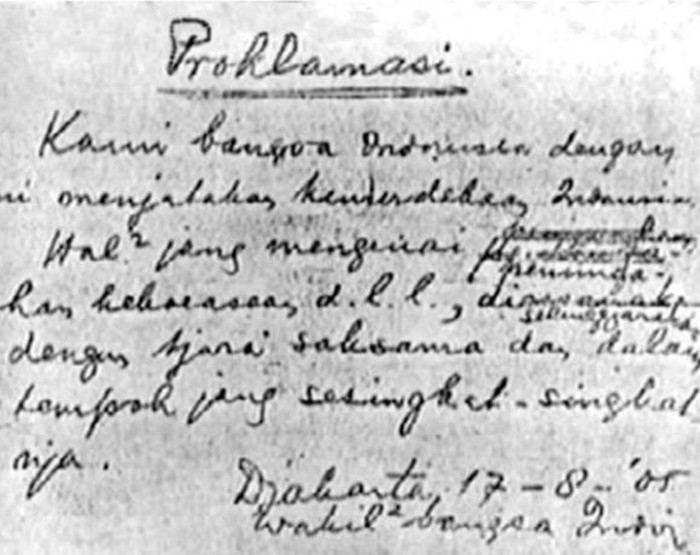 Proklamasi.
Kami bangsa Indonesia dengan
ni menjatakan kemerdekaan Indonesia
Hal² jang mengenai
peminda-
han kekoeasaan d.l.l.,
diselenggarakan
dengan tjara saksama dan dalam
tempoh jang sesingkat-singkat
nja.
Djakarta, 17 - 8 - '05
Wakil² bangsa Indon